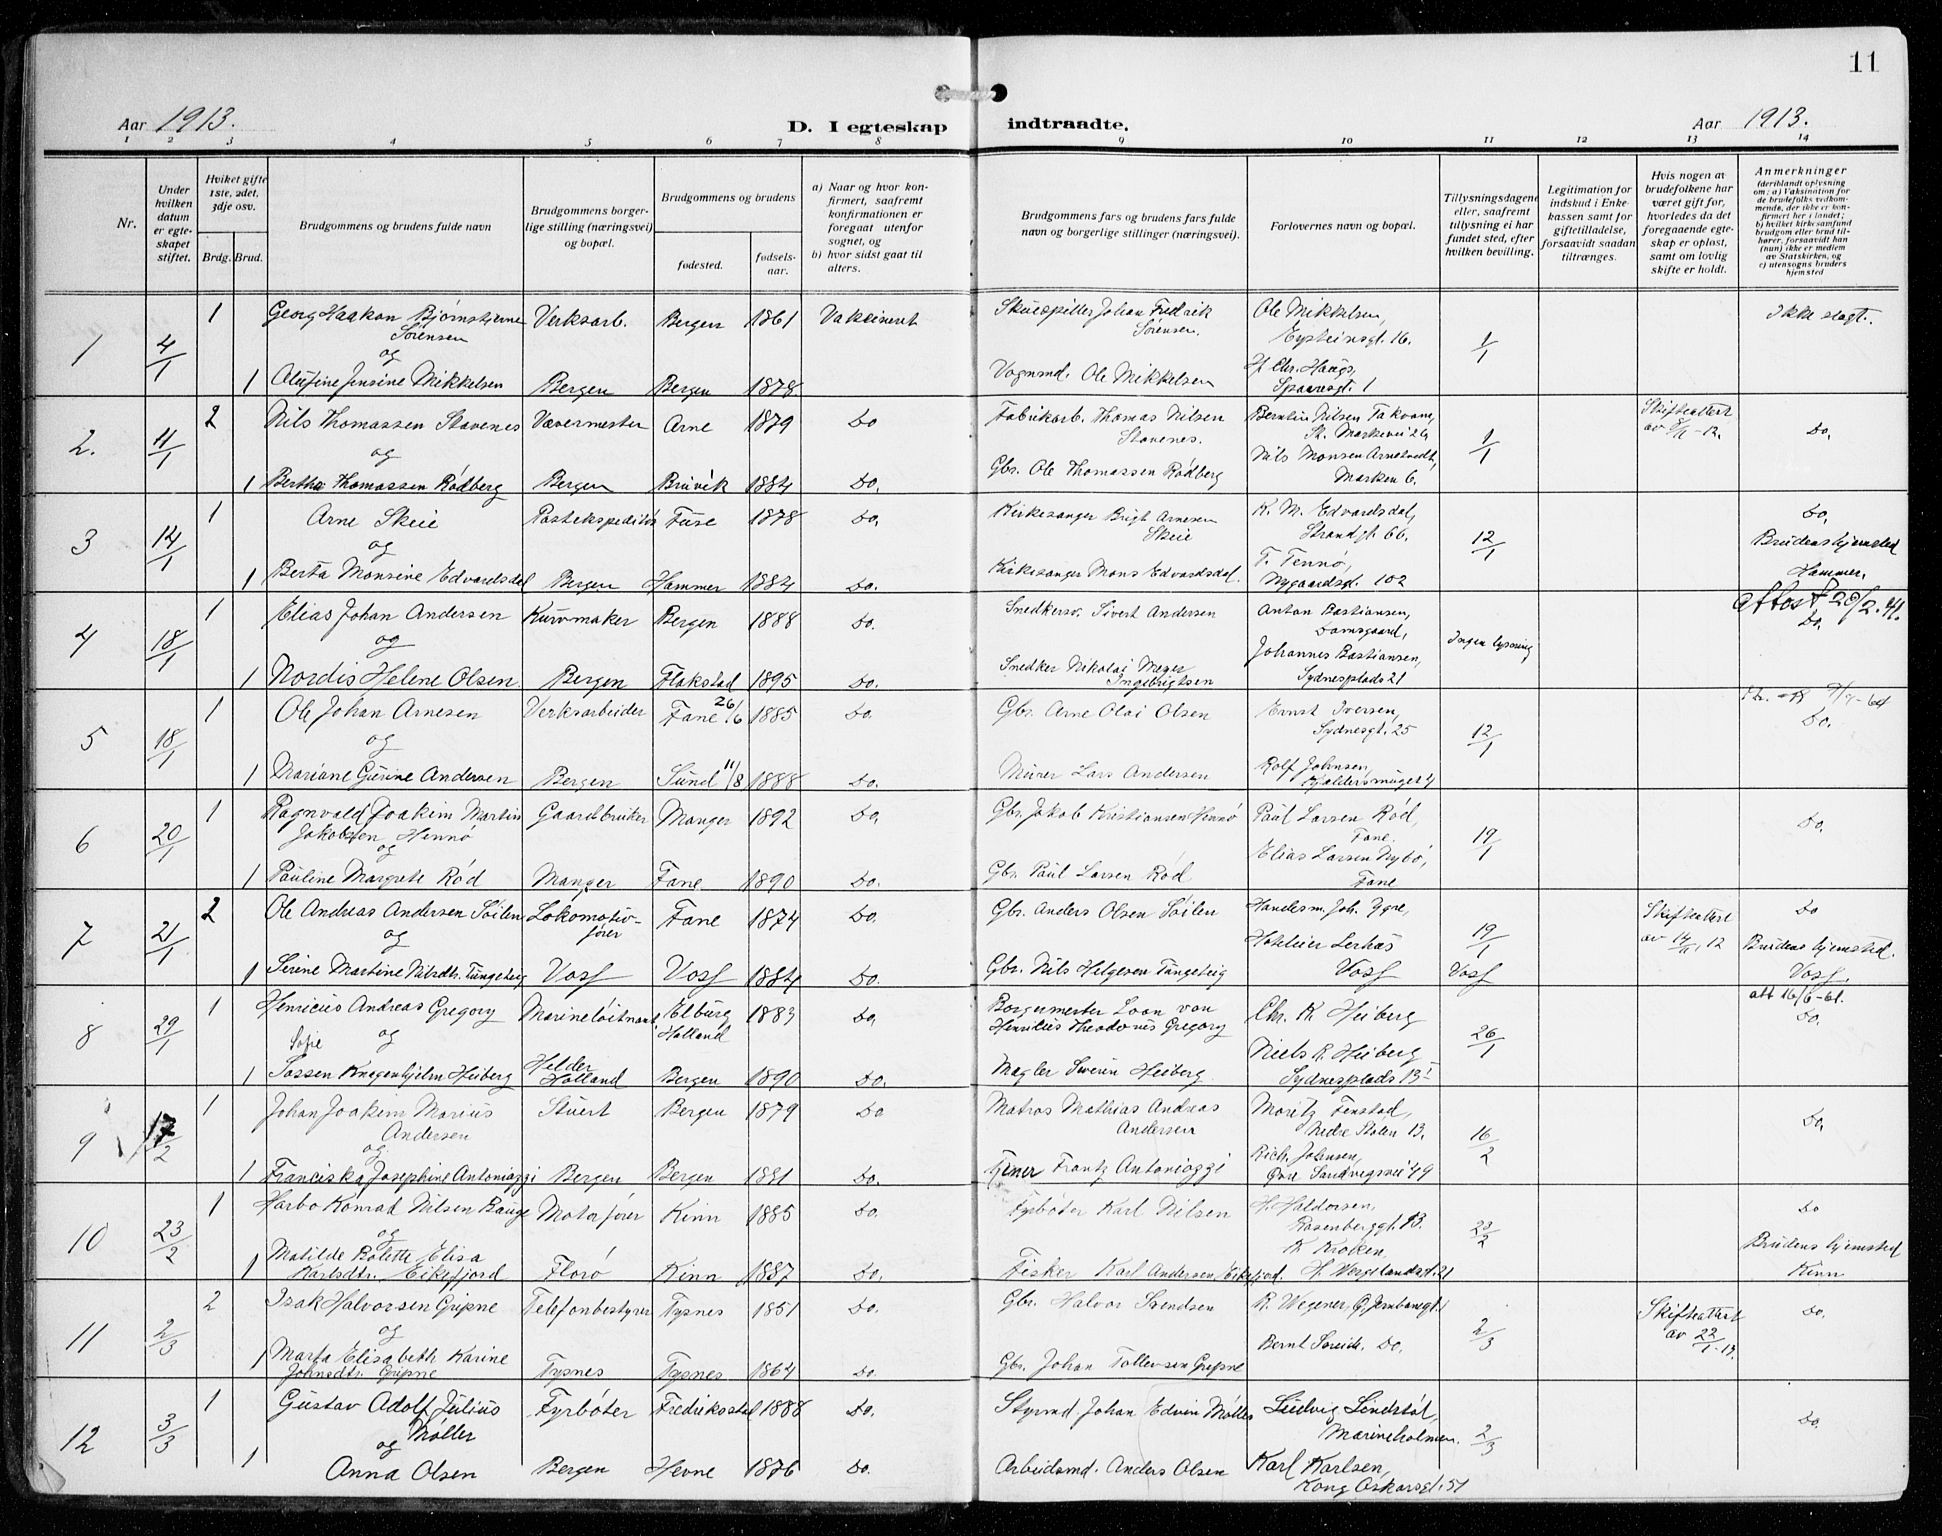 11
Aar 1913.
D. I egteskap indtraadte.
Aar 1913.
1 2 3 4 5 6 7 8 9 10 11 12 13 14
Nr.
Under hvilken datum er egteskapet stiftet.
Hvilket gifte 1ste, 2det, 3dje osv.
Brdg. Brud.
Brudgommens og brudens fulde navn
Brudgommens borgerlige stilling (næringsvei) og bopæl.
Brudgommens og brudens
fødested.
fødselsaar.
a) Naar og hvor konfirmert, saafremt konfirmationen er foregaat utenfor sognet, og
b) hvor sidst gaat til alters.
Brudgommens fars og brudens fars fulde navn og borgerlige stillinger (næringsvei).
Forlovernes navn og bopæl.
Tillysningsdagene eller, saafremt tillysning ei har fundet sted, efter hvilken bevilling.
Legitimation for indskud i Enkekassen samt for giftetilladelse, forsaavidt saadan tiltrænges.
Hvis nogen av brudefolkene har været gift før, hvorledes da det foregaaende egteskap er opløst, samt om lovlig skifte er holdt.
Anmerkninger
(deriblandt oplysning om: a) Vaksination for de brudefolks vedkommende, der ikke er konfirmert her i landet; b) hvilket kirkesamfund brudgom eller brud tilhører, forsaavidt han (hun) ikke er medlem av Statskirken, og c) utensogns bruders hjemsted
1 4/1 1 Georg Haakon Bjørnstjerne Verksarb. Bergen 1861 Vakcineret Skuespiller Johan Fredrik Ole Mikkelsen, 1/1 Ikke slegt.
Sørensen Sørensen. Eysteinsgt. 16.
og
1 Olufine Jensine Mikkelsen Bergen Bergen 1878. Vognmd. Ole Mikkelsen Spaaresgt. 1
2. 11/1 2 Nils Thomassen Stavenes Vævermester Arne 1879 Do Fabrikarb. Thomas Nilsen Berntin Nilsen Takvam, 1/1 Skifteattest Do.
Stavenes. St. Markevei 26,
og Nils Monsen Arnetvedt,
1 Bertha Thomassen Rødberg Bergen Bruvik 1884 Do. Gbr. Ole Thomassen Rødberg Marken 6.
3 14/1 1 Arne Skeie Postekspeditør Fuse 1878 Do. Kirkesanger Brigt Arnesen K. M. Edvardsdal, 12/1 Do.
Skeie Strandgt. 66. Brudens hjemsted
og Hammer.
1 Berta Monsine Edvardsdal Bergen Hammer 1884 Do. Kirkesanger Mons Edvardsdal. Nygaardsgt. 102
4 18/1 1 Elias Johan Andersen Kurvmaker Bergen 1888 Do. Snedkersv. Sivert Andersen Anton Bastiansen, Ingen lysning Attest 20/2. 41.
og Damsgaard, Do.
Johannes Bastiansen,
1 Nordis Helene Olsen. Bergen Flakstad 1895 Do. Snedker Nikolai Meyer Ingebrigtsen Sydnesplads 21
5 18/1 1 Ole Johan Arnesen Verksarbeider Fane 26/6 1885 Do. Gbr. Arne Olai Olsen Ernst Iversen, 12/1 Do.
og Sydnesgt. 25
1 Mariane Gurine Andersen Bergen Sund 11/8 1888 Do. Murer Lars Andersen Rolf Johnsen,
6 20/1 1 Ragnvald Joakim Martin Gaardbruker Manger 1892 Do. Gbr. Jakob Kristiansen Hennø Paul Larsen Rød, 19/1 Do.
Jakobsen Hennø Fane.
og Elias Larsen Nybø,
1 Pauline Margrete Rød Manger Fane 1890 Do. Gbr. Paul Larsen Rød Fane
7 21/1 2 Ole Andreas Andersen Søilen Lokomotivfører Fane 1874 Do. Gbr. Anders Olsen Søilen Handesm. Joh. Ygre, 19/1 Skifteattest Do
og Brudens hjemsted.
1 Serine Martine Nilsdtr. Tungeteig Voss Voss 1884 Do. Gbr. Nils Helgesen Tungeteig Voss Voss Voss.
8 29/1 1 Henricus Andreas Gregory Marineløitnant, Elburg Holland 1883 Do. Borgermester Loon van Chr. K. Heiberg 26/1 att 16/6-61.
Sofie og Henricus Theodorus Gregory Niels R. Heiberg Do.
1 Sossen Knagenhjelm Heiberg Helder Holland Bergen 1890 Do. Megler Severin Heiberg Sydnesplads 13
9 17/2 1 Johan Joakim Marius Stuert Bergen 1879 Do Matros Mathias Andreas Moritz Fenstad, 16/2 Do.
Andersen Andersen Nedre Stølen 13.
og Rich. Johnsen,
1 Franciska Josephine Antoniazzi Bergen Bergen 1881 Do. Frantz Antoniazzi Øvre Sandvigsvei 49
10 23/2 1 Harbo Konrad Nilsen Bauge Motorfører Kinn 1885 Do. Fyrbøter Karl Nilsen H. Haldorsen, 23/2 Do
og Rosenberggt. 13. Brudens hjemsted
Matilde Bolette Elisa K. Kroken, Kinn
1 Karlsdtr. Eikefjord Florø Kinn 1887 Do. Fisker Karl Andersen Eikefjord. H. Wergelandsgt. 21
11 2/3 2 Isak Halvorsen Gripne Telefonbestyrer Tysnes 1851 Do. Gbr. Halvor Svendsen R. Wegener, 2/3 Skifteattest Do.
og Bernt Søreide, Do. av 22/1-13.
1 Marta Elisabeth Karine
Johnsdtr. Gripne Tysnes Tysnes 1864 Do. Gbr. Johan Tollevsen Gripne
12 3/3 1 Gustav Adolf Julius Fyrbøter Fredriksstad 1888 Do. Styrmd Johan Edvin Møller Ludvig Lindstøl, 2/3 Do.
Møller Marineholmen.
og
1 Anna Olsen Bergen Hevne 1876 Do. Arbeidsmd. Anders Olsen Karl Karlsen,
Kong Oskarsgt. 51